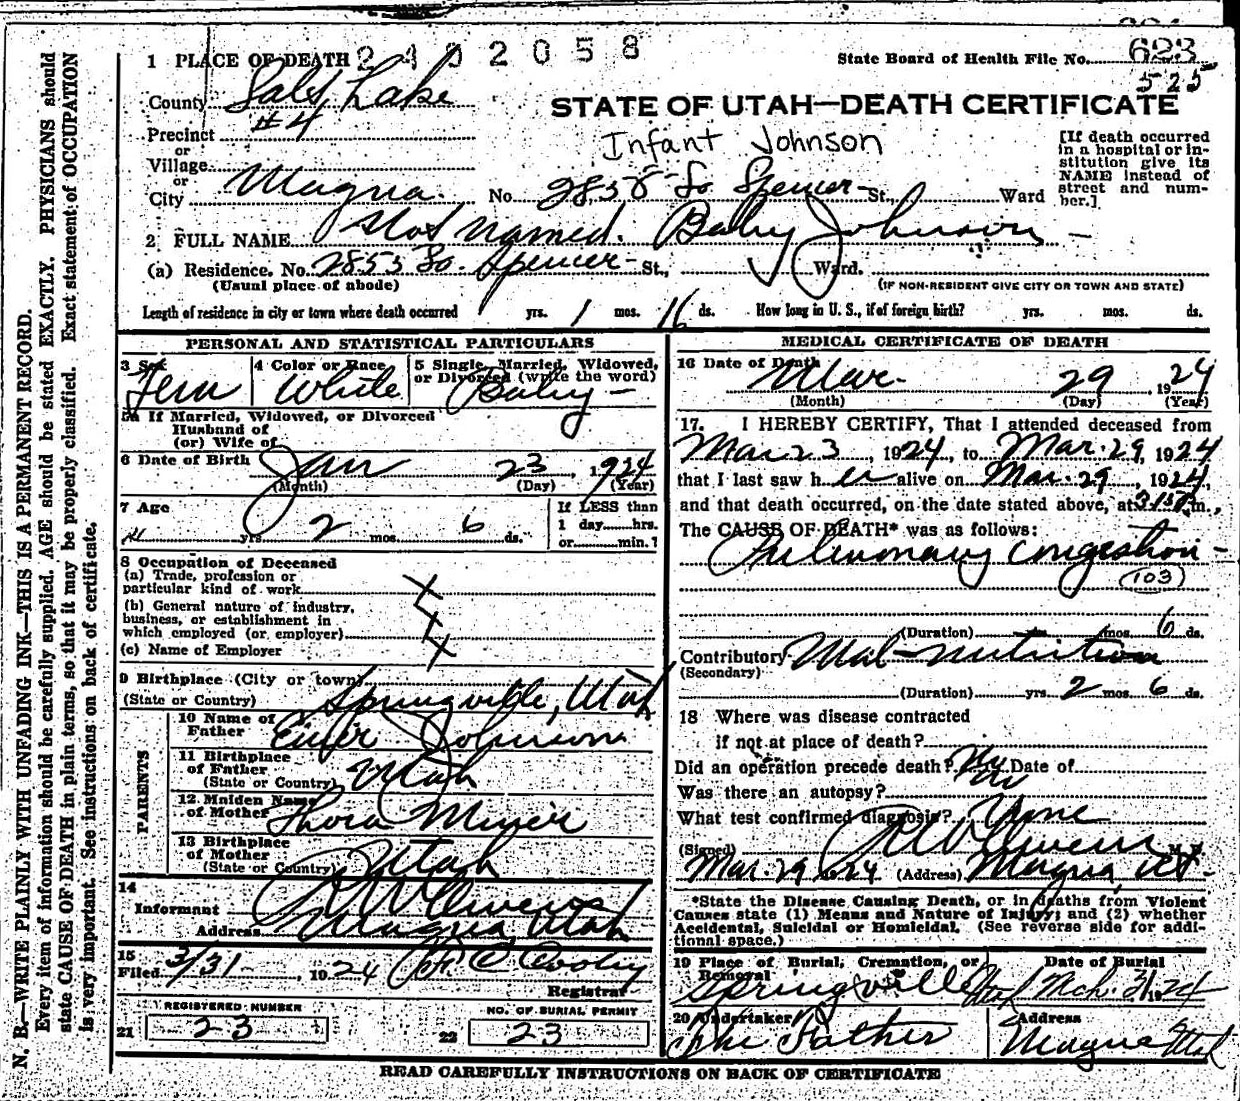 N. B.—WRITE PLAINLY WITH UNFADING INK—THIS IS A PERMANENT RECORD.
Every item of information should be carefully supplied. AGE should be stated EXACTLY. PHYSICIANS should
state CAUSE OF DEATH in plain terms, so that it may be properly classified. Exact statement of OCCUPATION
is very important. See instructions on back of certificate.
1 PLACE OF DEATH 2402058
State Board of Health File No. 623
525
County Salt Lake
STATE OF UTAH—DEATH CERTIFICATE
Precinct #4
or
Infant Johnson
[If death occurred
in a hospital or in-
stitution give its
NAME instead of
street and num-
ber.]
Village
or
City Magna. No. So Spencer St., Ward
2 FULL NAME Not Named. Baby Johnson
(a) Residence. No. 2853 So. Spencer St., Ward.
(Usual place of abode)
(IF NON-RESIDENT GIVE CITY OR TOWN AND STATE)
Length of residence in city or town where death occurred yrs. 1 mos. 16 ds. How long in U. S., if of foreign birth? yrs. mos. ds.
PERSONAL AND STATISTICAL PARTICULARS
3 Sex Fem
4 Color or Race White
5 Single, Married, Widowed,
or Divorced (write the word) Baby
5a If Married, Widowed, or Divorced
Husband of
(or) Wife of
6 Date of Birth Jan 23, 1924
(Month) (Day) (Year)
7 Age yrs. 2 mos. 6 ds.
If LESS than
1 day hrs.
or min.
8 Occupation of Deceased
(a) Trade, profession or
particular kind of work X
(b) General nature of industry,
business, or establishment in
which employed (or employer) X
(c) Name of Employer X
9 Birthplace (City or town) Springville, Utah
(State or Country)
PARENTS
10 Name of
Father Johnson
11 Birthplace
of Father Utah
(State or Country)
12 Maiden Name
of Mother Thora
13 Birthplace
of Mother Utah
(State or Country)
14
Informant R W Owens
Address Magna, Utah
15
Filed 3/31, 1924
Registrar
REGISTERED NUMBER
21 23
NO. OF BURIAL PERMIT
22 23
MEDICAL CERTIFICATE OF DEATH
16 Date of Death Mar. 29 1924
(Month) (Day) (Year)
17. I HEREBY CERTIFY, That I attended deceased from
Mar 23, 1924, to Mar. 29, 1924
that I last saw h er alive on Mar. 29, 1924,
and that death occurred, on the date stated above, at m.,
The CAUSE OF DEATH* was as follows:
Pulmonary Congestion
(103)
(Duration) mos. 6 ds.
Contributory Mal-nutrition
(Secondary)
(Duration) yrs. 2 mos. 6 ds.
18 Where was disease contracted
if not at place of death?
Did an operation precede death? No Date of
Was there an autopsy? No
What test confirmed diagnosis? None
(Signed) R W Owens M. D.
Mar. 29 1924 (Address) Magna, Ut.
*State the Disease Causing Death, or in deaths from Violent
Causes state (1) Means and Nature of Injury; and (2) whether
Accidental, Suicidal or Homicidal. (See reverse side for addi-
tional space.)
19 Place of Burial, Cremation, or
Removal
Springville Utah
Date of Burial
Mch. 31 1924
20 Undertaker
The Father
Address
Magna Utah
READ CAREFULLY INSTRUCTIONS ON BACK OF CERTIFICATE